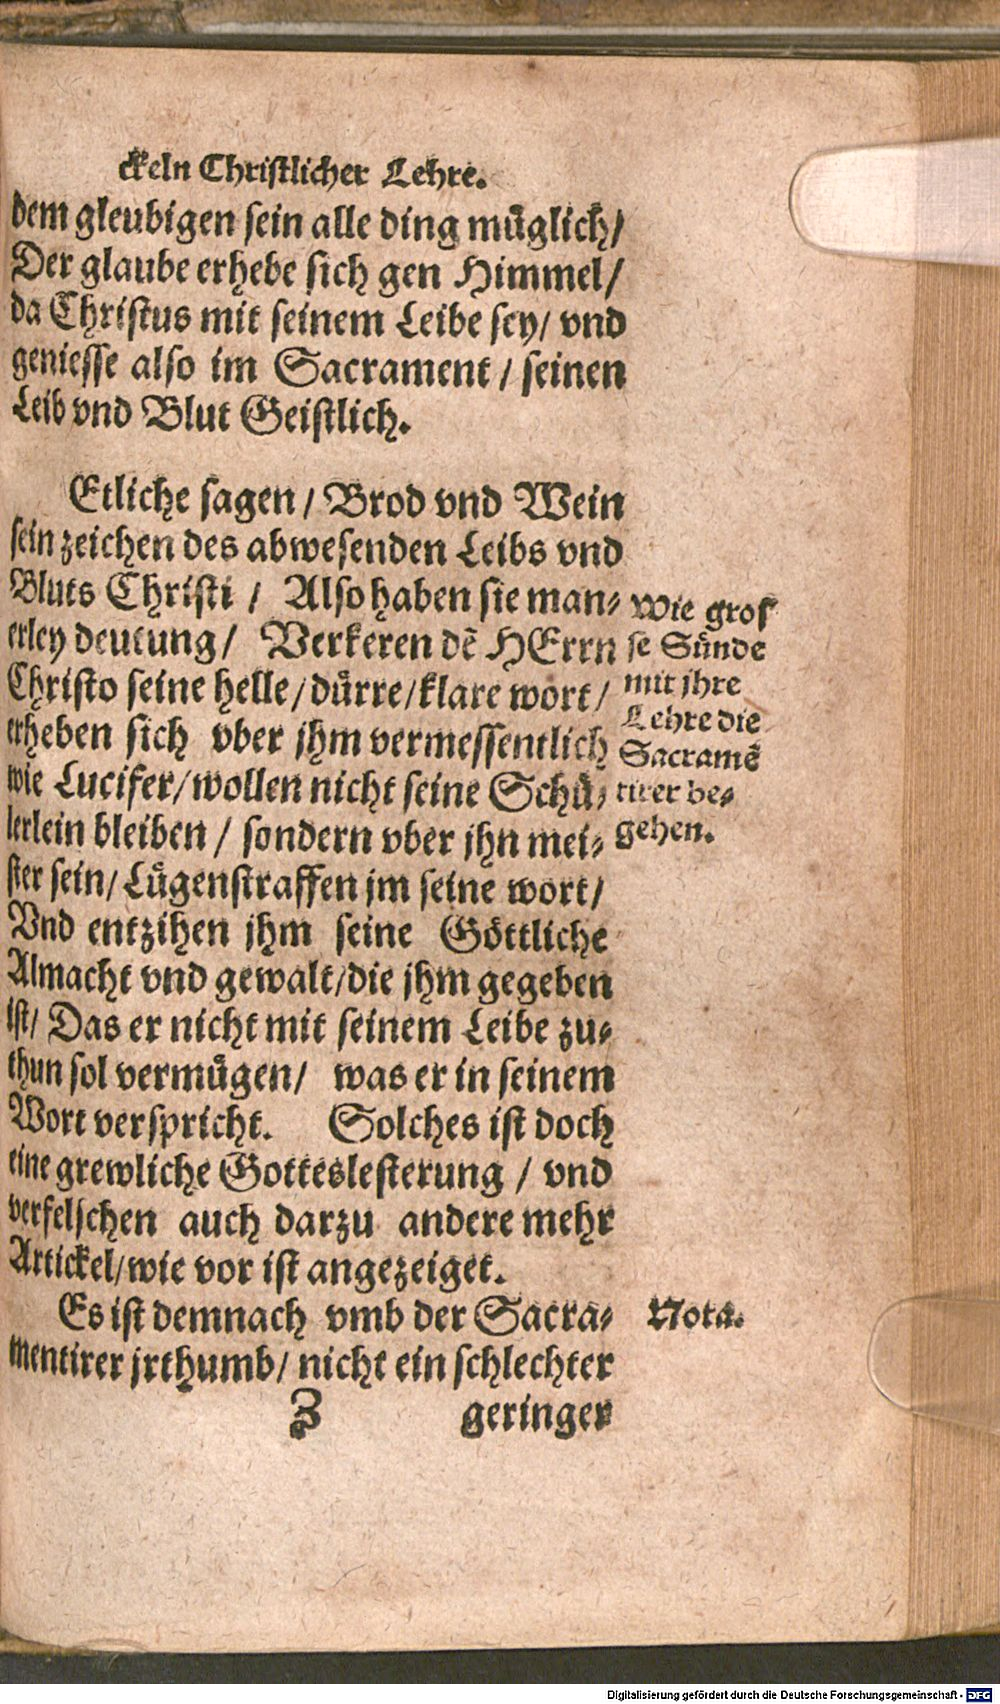 ckeln Christlicher Lehre.
dem gleubigen sein alle ding müglich/
Der glaube erhebe sich gen Himmel/
da Christus mit seinem Leibe sey/ vnd
geniesse also im Sacrament / seinen
Leib vnd Blut Geistlich.
Etliche sagen / Brod vnd Wein
sein zeichen des abwesenden Leibs vnd
Bluts Christi / Also haben sie man-
erley deutung/ Verkeren dē HErrn
Christo seine helle/dürre/klare wort/
erheben sich vber jhm vermessentlich
wie Lucifer/wollen nicht seine Schü-
lerlein bleiben / sondern vber jhn mei-
ster sein/ Lügenstraffen jm seine wort/
Vnd entzihen jhm seine Göttliche
Almacht vnd gewalt/die jhm gegeben
ist/ Das er nicht mit seinem Leibe zu-
thun sol vermügen/ was er in seinem
Wort verspricht. Solches ist doch
eine grewliche Gotteslesterung / vnd
verfelschen auch darzu andere mehr
Artickel/wie vor ist angezeiget.
Es ist demnach vmb der Sacra-
mentirer jrthumb/ nicht ein schlechter
Z geringer
Wie gros
se Sünde
mit jhre
Lehre die
Sacramē
tirer be-
gehen.
Nota.
Digitalisierung gefördert durch die Deutsche Forschungsgemeinschaft - DFG